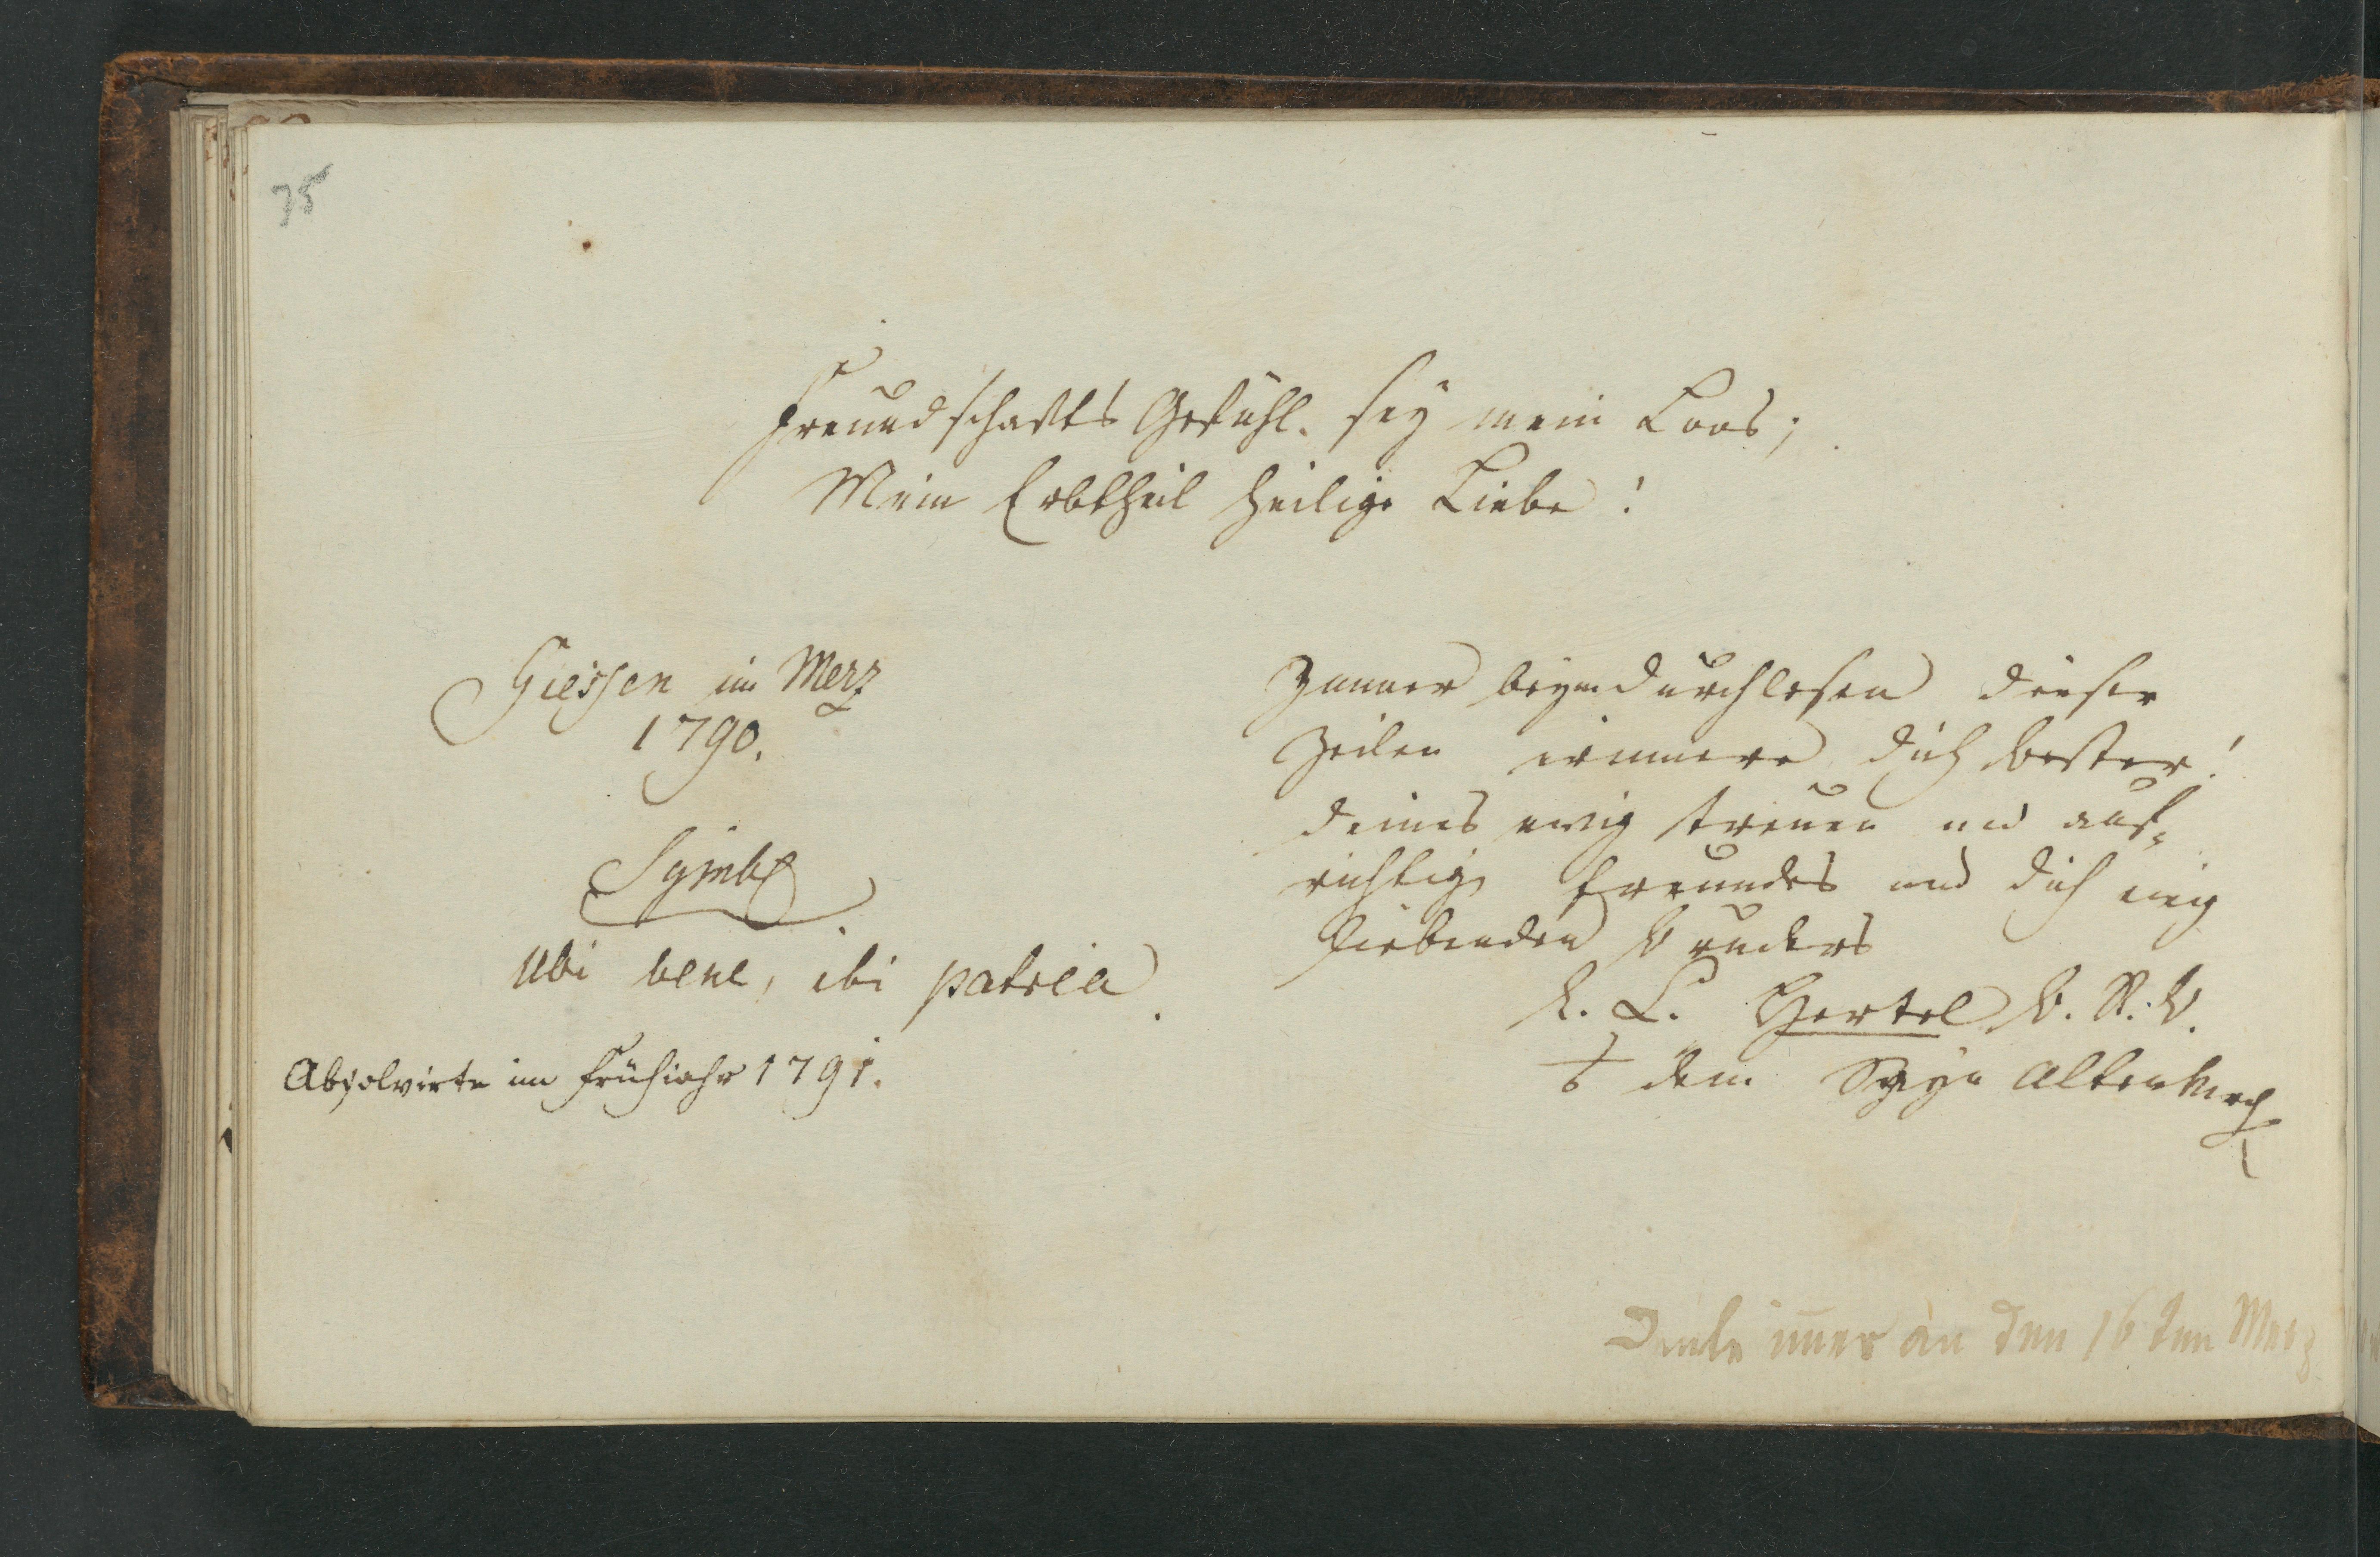 75
Freundschafts Gefühl. sey mein Loos;
Mein Erbtheil heilige Liebe!
Giessen im Merz
1790.
Symb.
Ubi bene, ibi patria.
Absolvirte im Frühjahr 1791.
Immer beym durchlesen dieser
Zeilen erinnere dich bester!
deines ewig treuen und auf-
richtig Freundes und dich ewig
liebenden Bruders
L. Hertel
dem Sayn Altenkirch
Denke imer an den 16ten Merz